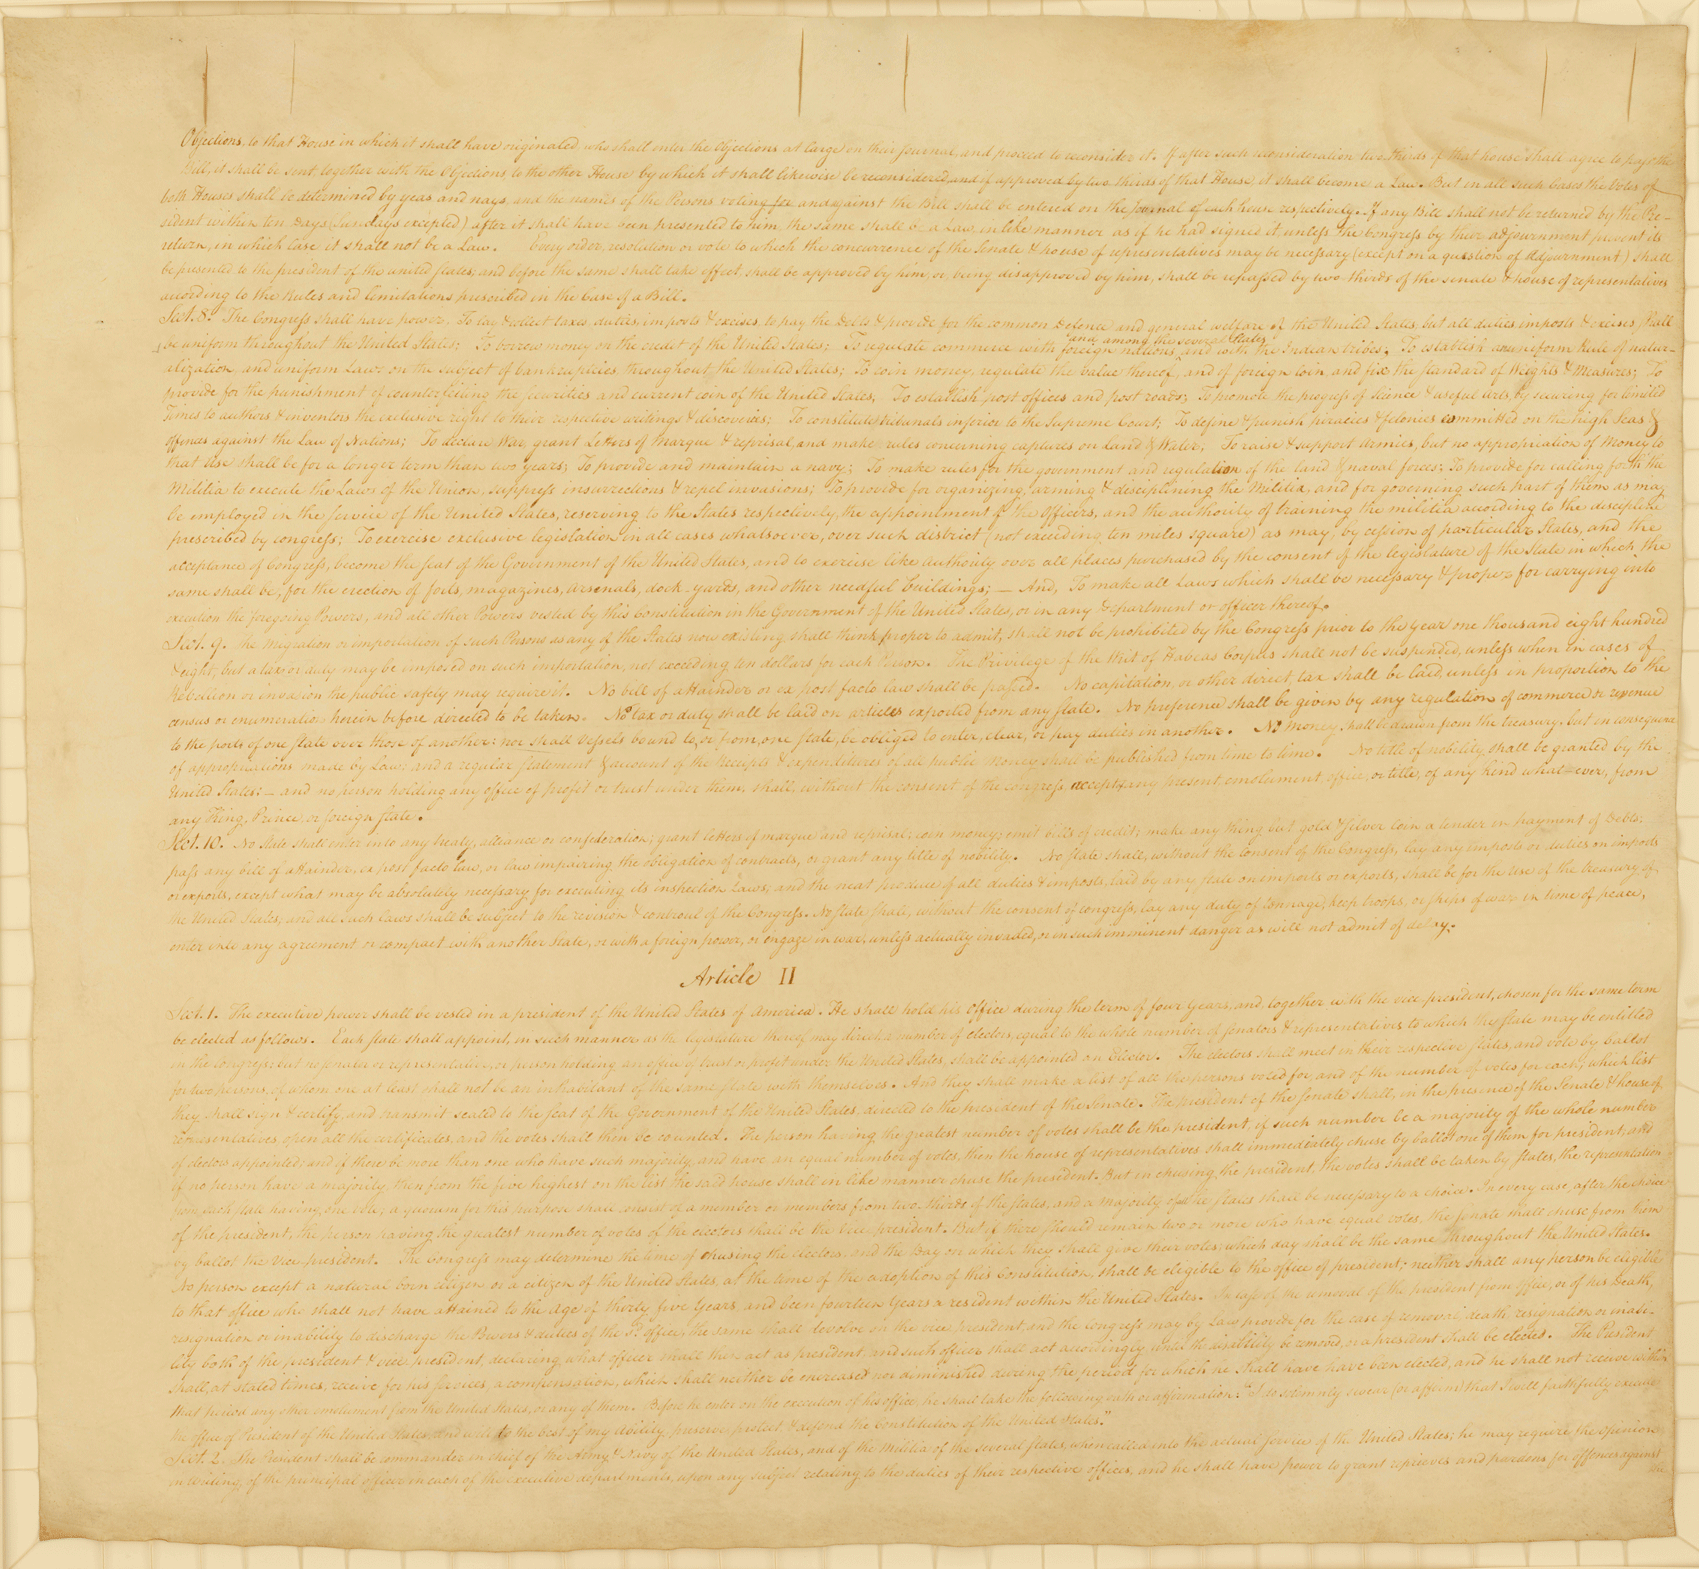 Objections, to that House in which it shall have originated, who shall enter the Objections at large on their Journal, and proceed to reconsider it. If after such reconsideration two thirds of that house shall agree to pass the
Bill, it shall be sent, together with the Objections, to the other House by which it shall likewise be reconsidered, and if approved by two thirds of that House, it shall become a Law. But in all such Cases the Votes of
both Houses shall be determined by yeas and nays, and the names of the Persons voting for and against the Bill shall be entered on the journal of each house respectively. If any Bill shall not be returned by the Pre-
sident within ten Days (Sundays excepted) after it shall have been presented to him, the same shall be a Law, in like manner as if he had signed it, unless the Congress by their adjournment prevent its
return, in which Case it shall not be a Law. Every order, resolution or vote to which the concurrence of the Senate & house of representatives may be necessary (except on a question of Adjournment) shall
be presented to the president of the united states; and before the same shall take effect shall be approved by him, or, being disapproved by him, shall be repassed by two thirds of the senate & house of representatives
according to the Rules and limitations prescribed in the Case of a Bill.
Sect. 8. The Congress shall have power. To lay & collect taxes, duties, imposts & excises, to pay the Debts & provide for the common Defence and general welfare of the United States; but all duties imposts & excises, shall
be uniform throughout the United States; To borrow money on the credit of the United States; To regulate commerce with foreign nations, and among the several States and with the Indian tribes. To establish an uniform Rule of natur-
alization, and uniform Laws on the subject of bankruptcies, throughout the United States; To coin money, regulate the value thereof, and of foreign Coin, and fix the standard of Weights & Measures; To
provide for the punishment of counterfeiting the securities and current coin of the United States. To establish post offices and post roads; To promote the progress of science & useful Arts, by securing for limited
Times to authors & inventors the exclusive right to their respective writings & discoveries; To constitute tribunals inferior to the Supreme Court; To define & punish piracies & felonies committed on the high Seas &
offences against the Law of Nations; To declare War, grant Letters of Marque & reprisal, and make rules concerning captures on Land & Water, To raise & support Armies, but no appropriation of Money to
that Use shall be for a longer term than two years; To provide and maintain a navy; To make rules for the government and regulation of the land & naval forces; To provide for calling forth the
Militia to execute the Laws of the Union, suppress insurrections & repel invasions; To provide for organizing, arming & disciplining the Militia, and for governing such part of them as may
be employed in the service of the United States, reserving to the States respectively, the appointment of the Officers, and the authority of training the militia according to the discipline
prescribed by congress; To exercise exclusive legislation in all cases whatsoever, over such district (not exceeding ten miles square) as may, by cession of particular States, and the
acceptance of Congress, become the seat of the Government of the United States, and to exercise like authority over all places purchased by the consent of the legislature of the State in which the
same shall be, for the erection of forts, magazines, arsenals, dock-yards, and other needful buildings; — And, To make all Laws which shall be necessary & proper for carrying into
execution the foregoing Powers, and all other Powers vested by this Constitution in the Government of the United States, or in any department or officer thereof.
Sect. 9. The Migration or importation of such Persons as any of the States now existing shall think proper to admit, shall not be prohibited by the Congress prior to the Year one thousand eight hundred
& eight, but a tax or duty may be imposed on such importation, not exceeding ten dollars for each Person. The Privilege of the Writ of Habeas Corpus shall not be suspended, unless when in cases of
Rebellion or invasion the public safety may require it. No bill of attainder or ex post facto law shall be passed. No capitation, or other direct, tax shall be laid, unless in proportion to the
census or enumeration herein before directed to be taken. No tax or duty shall be laid on articles exported from any state. No preference shall be given by any regulation of commerce or revenue
to the ports of one state over those of another: nor shall vessels bound to, or from, one state, be obliged to enter, clear, or pay duties in another. No money shall be drawn from the treasury, but in consequence
of appropriations made by Law; and a regular statement & account of the receipts & expenditures of all public money shall be published from time to time. No title of nobility shall be granted by the
United States: — and no person holding any office of profit or trust under them, shall, without the consent of the congress accept of any present, emolument, office, or title, of any kind whatever, from
any King, Prince, or foreign State.
Sect. 10. No State shall enter into any treaty, alliance or confederation; grant letters of marque and reprisal; coin money; emit bills of credit; make any thing but gold & silver coin a tender in payment of Debts;
pass any bill of attainder, ex post facto law, or law impairing the obligation of contracts, or grant any title of nobility. No state shall, without the consent of the Congress, lay any imposts or duties on imports
or exports, except what may be absolutely necessary for executing its inspection Laws; and the neat produce of all duties & imposts, laid by any state on imports or exports, shall be for the use of the treasury of
the United States; and all such Laws shall be subject to the revision & controul of the Congress. No state shall, without the consent of congress, lay any duty of tonnage, keep troops, or ships of war in time of peace,
enter into any agreement or compact with another State, or with a foreign power, or engage in war, unless actually invaded, or in such imminent danger as will not admit of delay.
Article II
Sect. 1. The executive power shall be vested in a president of the United States of America. He shall hold his Office during the term of four Years, and, together with the vice president, chosen for the same term
be elected as follows. Each state shall appoint, in such manner as the legislature thereof may direct, a number of electors, equal to the whole number of senators & representatives to which the state may be entitled
in the Congress: but no senator or representative, or person holding an office of trust or profit under the United States, shall be appointed an Elector. The electors shall meet in their respective states, and vote by ballot
for two persons, of whom one at least shall not be an inhabitant of the same state with themselves. And they shall make a list of all the persons voted for, and of the number of votes for each; which list
they shall sign & certify, and transmit sealed to the seat of the Government of the United States, directed to the president of the Senate. The president of the senate shall, in the presence of the Senate & house of
representatives open all the certificates, and the votes shall then be counted. The person having the greatest number of votes shall be the president, if such number be a majority of the whole number
of electors appointed; and if there be more than one who have such majority, and have an equal number of votes, then the house of representatives shall immediately chuse by ballot one of them for president; and
if no person have a majority, then from the five highest on the list the said house shall in like manner chuse the president. But in chusing the president, the votes shall be taken by states, the representation
from each state having one vote; a quorum for this purpose shall consist of a member or members from two-thirds of the states, and a majority of all the states shall be necessary to a choice. In every case, after the choice
of the president, the person having the greatest number of votes of the electors shall be the vice president. But if there should remain two or more who have equal votes, the senate shall chuse from them
by ballot the vice president. The Congress may determine the time of chusing the electors, and the Day on which they shall give their votes; which day shall be the same throughout the United States.
No person except a natural born citizen or a citizen of the United States, at the time of the adoption of this Constitution, shall be eligible to the office of president; neither shall any person be eligible
to that office who shall not have attained to the Age of thirty five Years, and been fourteen Years a resident within the United States. In case of the removal of the president from office, or of his Death,
resignation or inability to discharge the Powers & duties of the Sd. office, the same shall devolve on the vice president, and the congress may by Law provide for the case of removal, death, resignation or inabi-
lity both of the president & vice president, declaring what officer shall then act as president, and such officer shall act accordingly, until the disability be removed, or a president shall be elected. The President
shall, at stated times, receive for his services, a compensation, which shall neither be encreased nor diminished during the period for which he shall have have been elected, and he shall not receive within
that period any other emolument from the United States, or any of them. Before he enter on the execution of his office, he shall take the following oath or affirmation: "I do solemnly swear (or affirm) that I will faithfully execute
the office of President of the United States, and will to the best of my ability, preserve protect & defend the Constitution of the United States."
Sect. 2. The President shall be commander in chief of the Army & Navy of the United States, and of the Militia of the several states, when called into the actual service of the United States; he may require the Opinion
in writing, of the principal officer in each of the executive departments, upon any subject relating to the duties of their respective offices, and he shall have power to grant reprieves and pardons for offences against
the